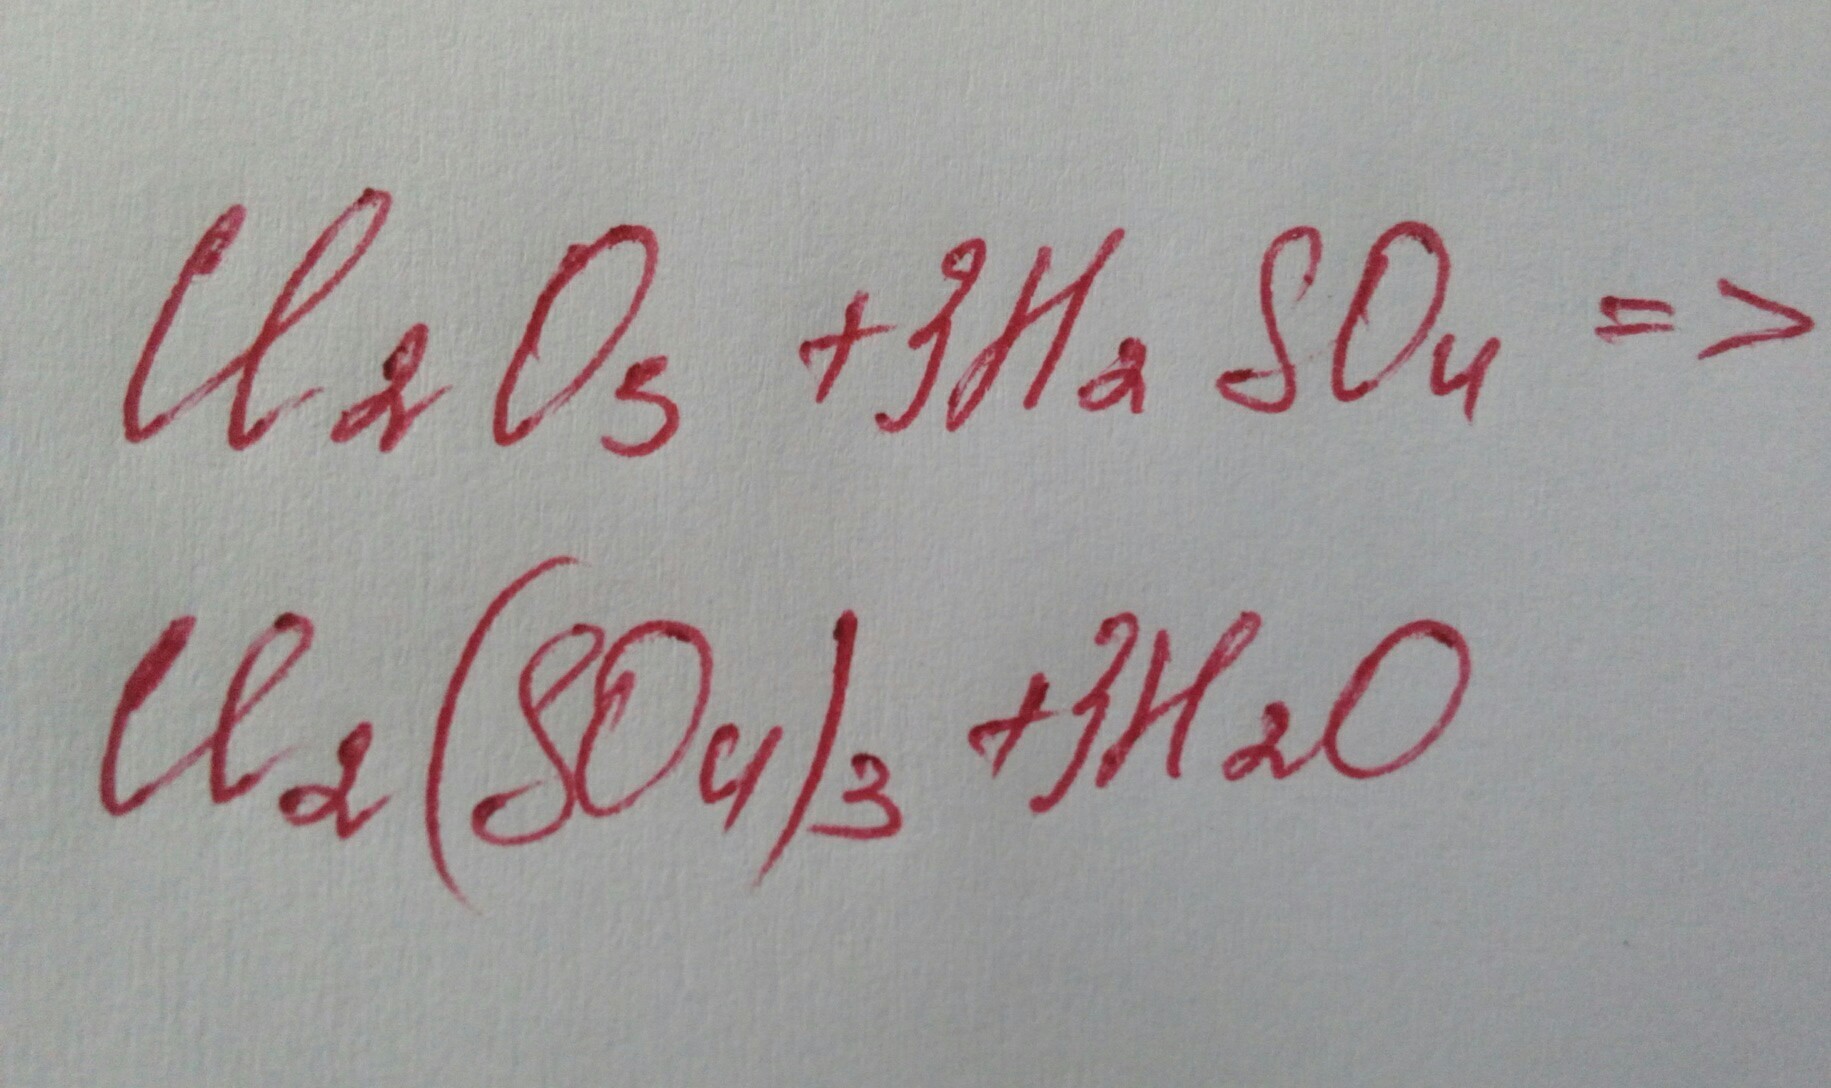 Cl₂O₃ + 3H₂SO₄ =>
Cl₂(SO₄)₃ + 3H₂O